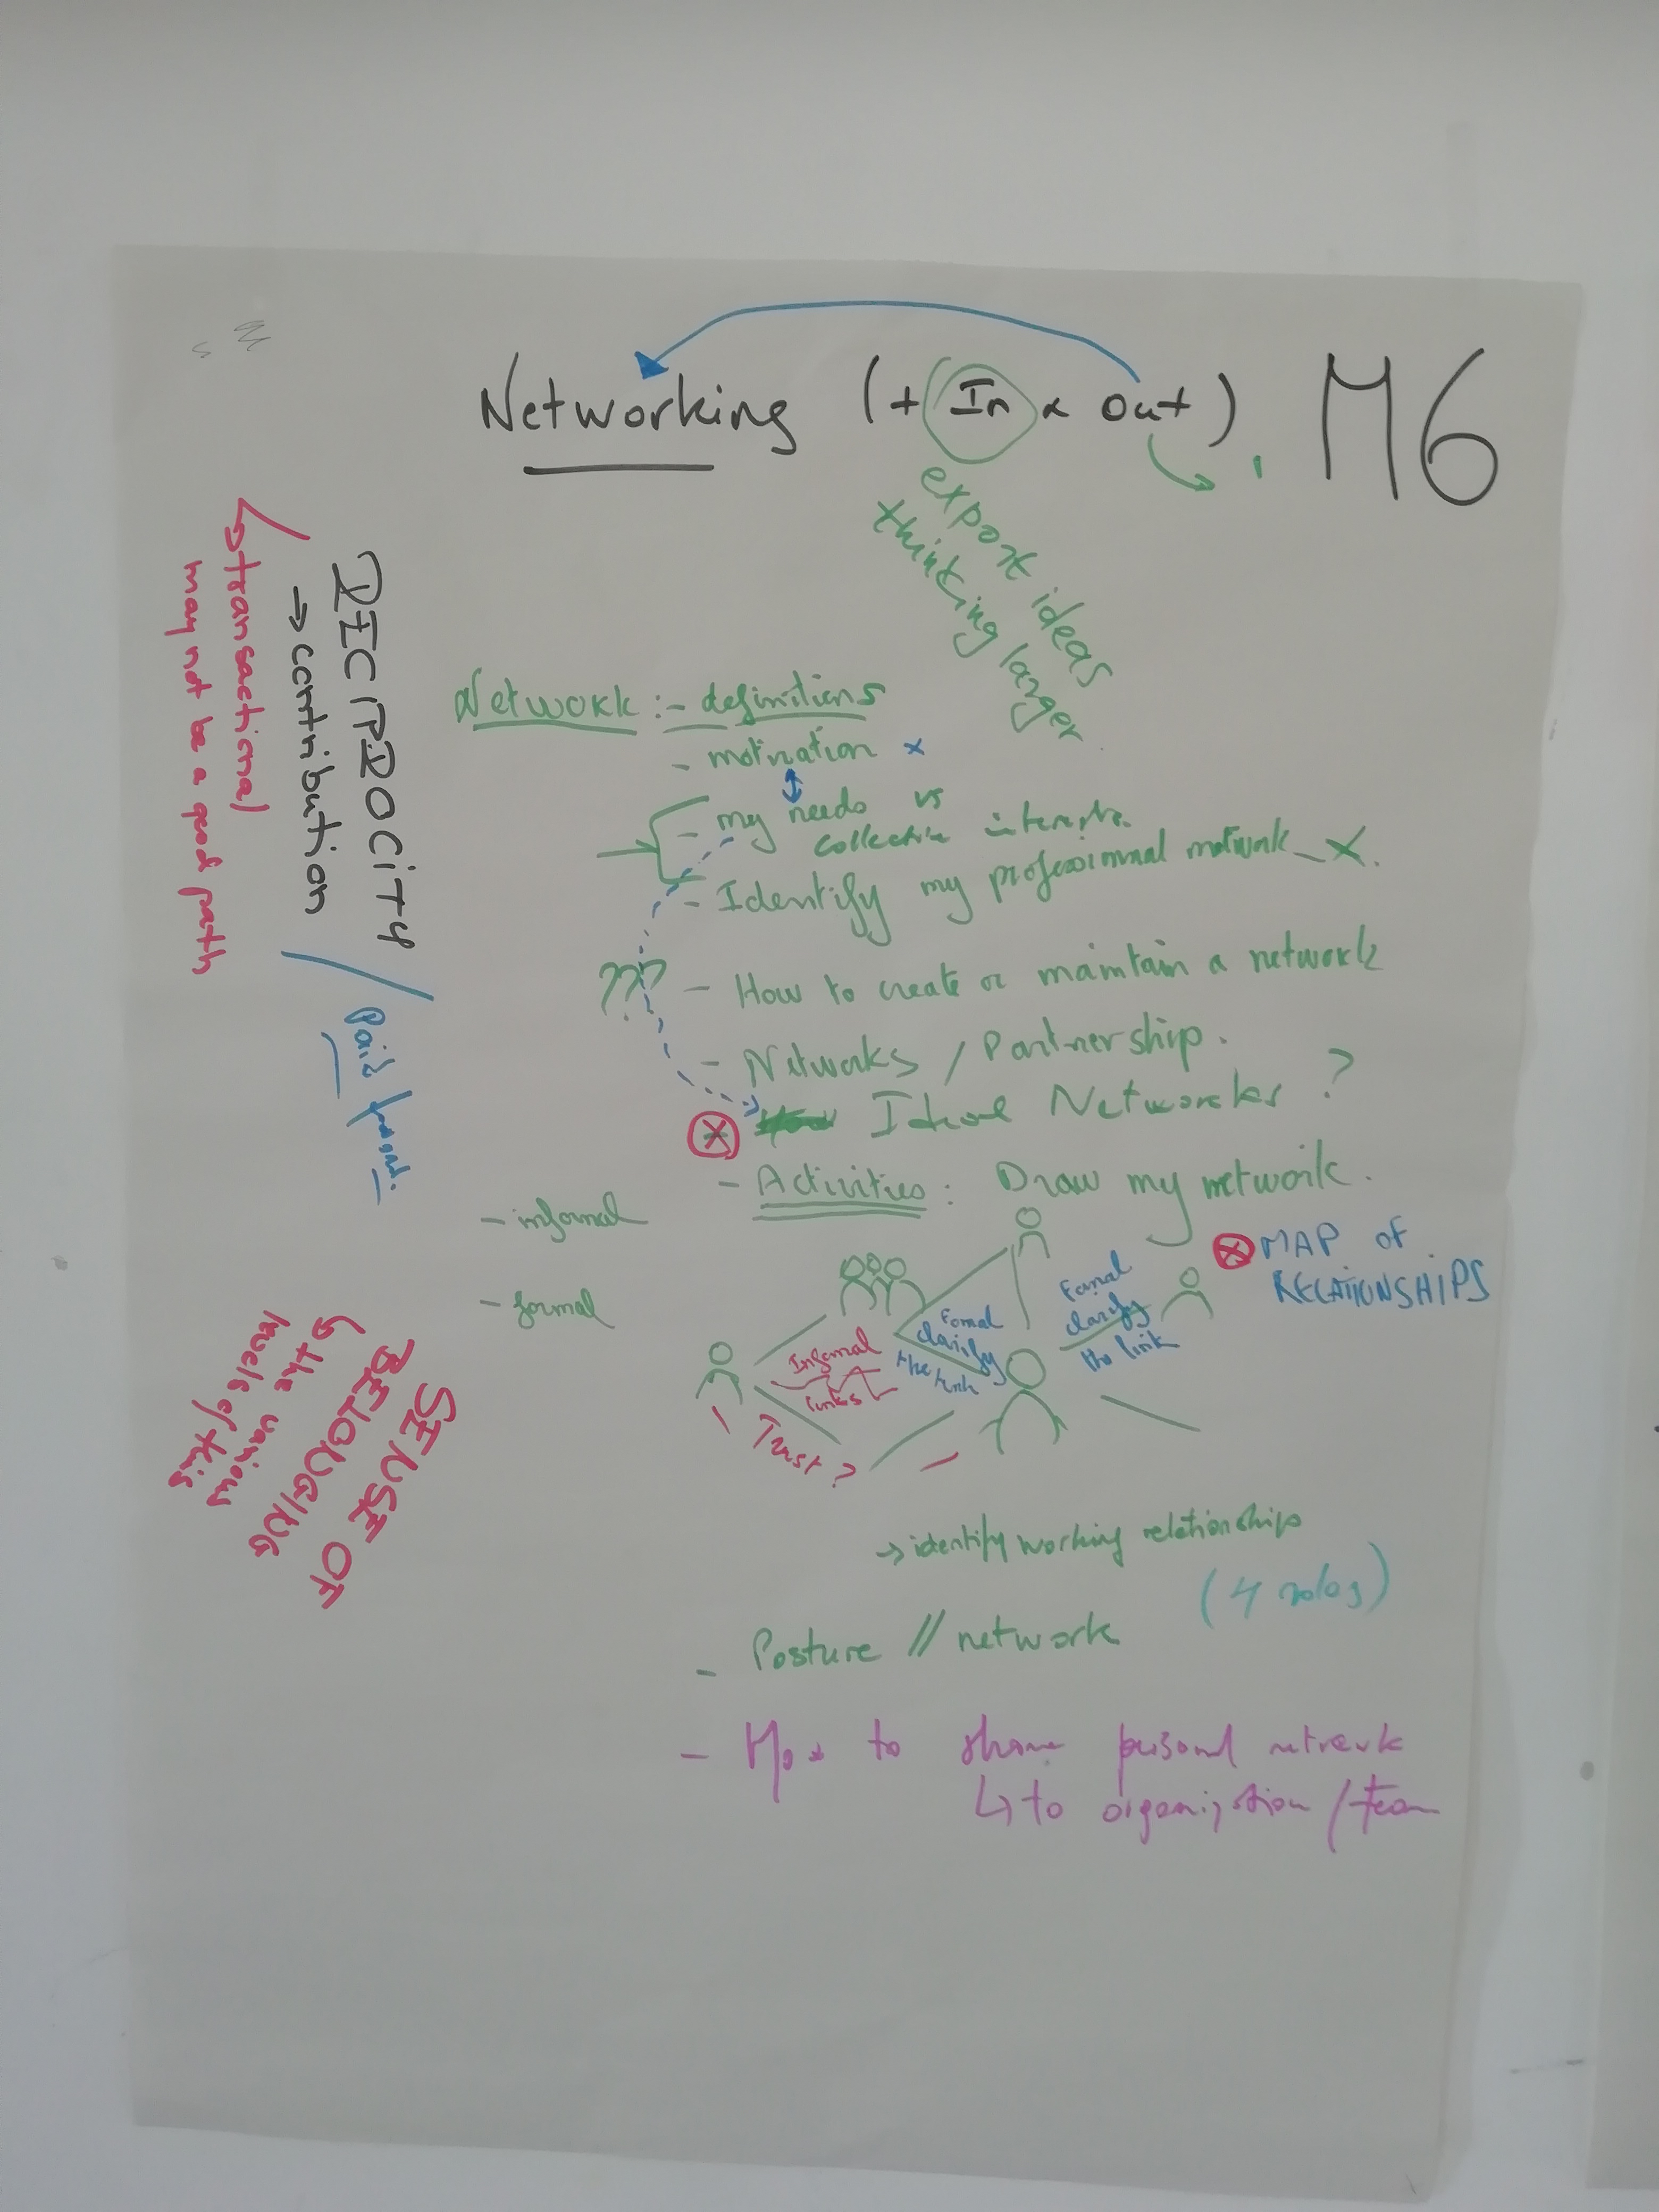 Networking (+ In & Out) M6
export ideas
thinking larger
Network : - definitions
- motivation x
- my needs vs
collective interests.
- Identify my professional network - x.
??? - How to create or maintain a network
- Networks / Partnership.
Ideal Networks ?
- Activities : Draw my network.
- informal
- formal
MAP of
RELATIONSHIPS
Informal
links
Formal
clarify
the link
Formal
clarify
the link
Trust ?
→ identify working relationships
(4 roles)
- Posture // network
- How to share personal network
↳ to organisation / team
RICIPROCITY
→ contribution
↳ transactional
may not be a good path
SENSE OF
BELONGING
↳ the various
levels of this